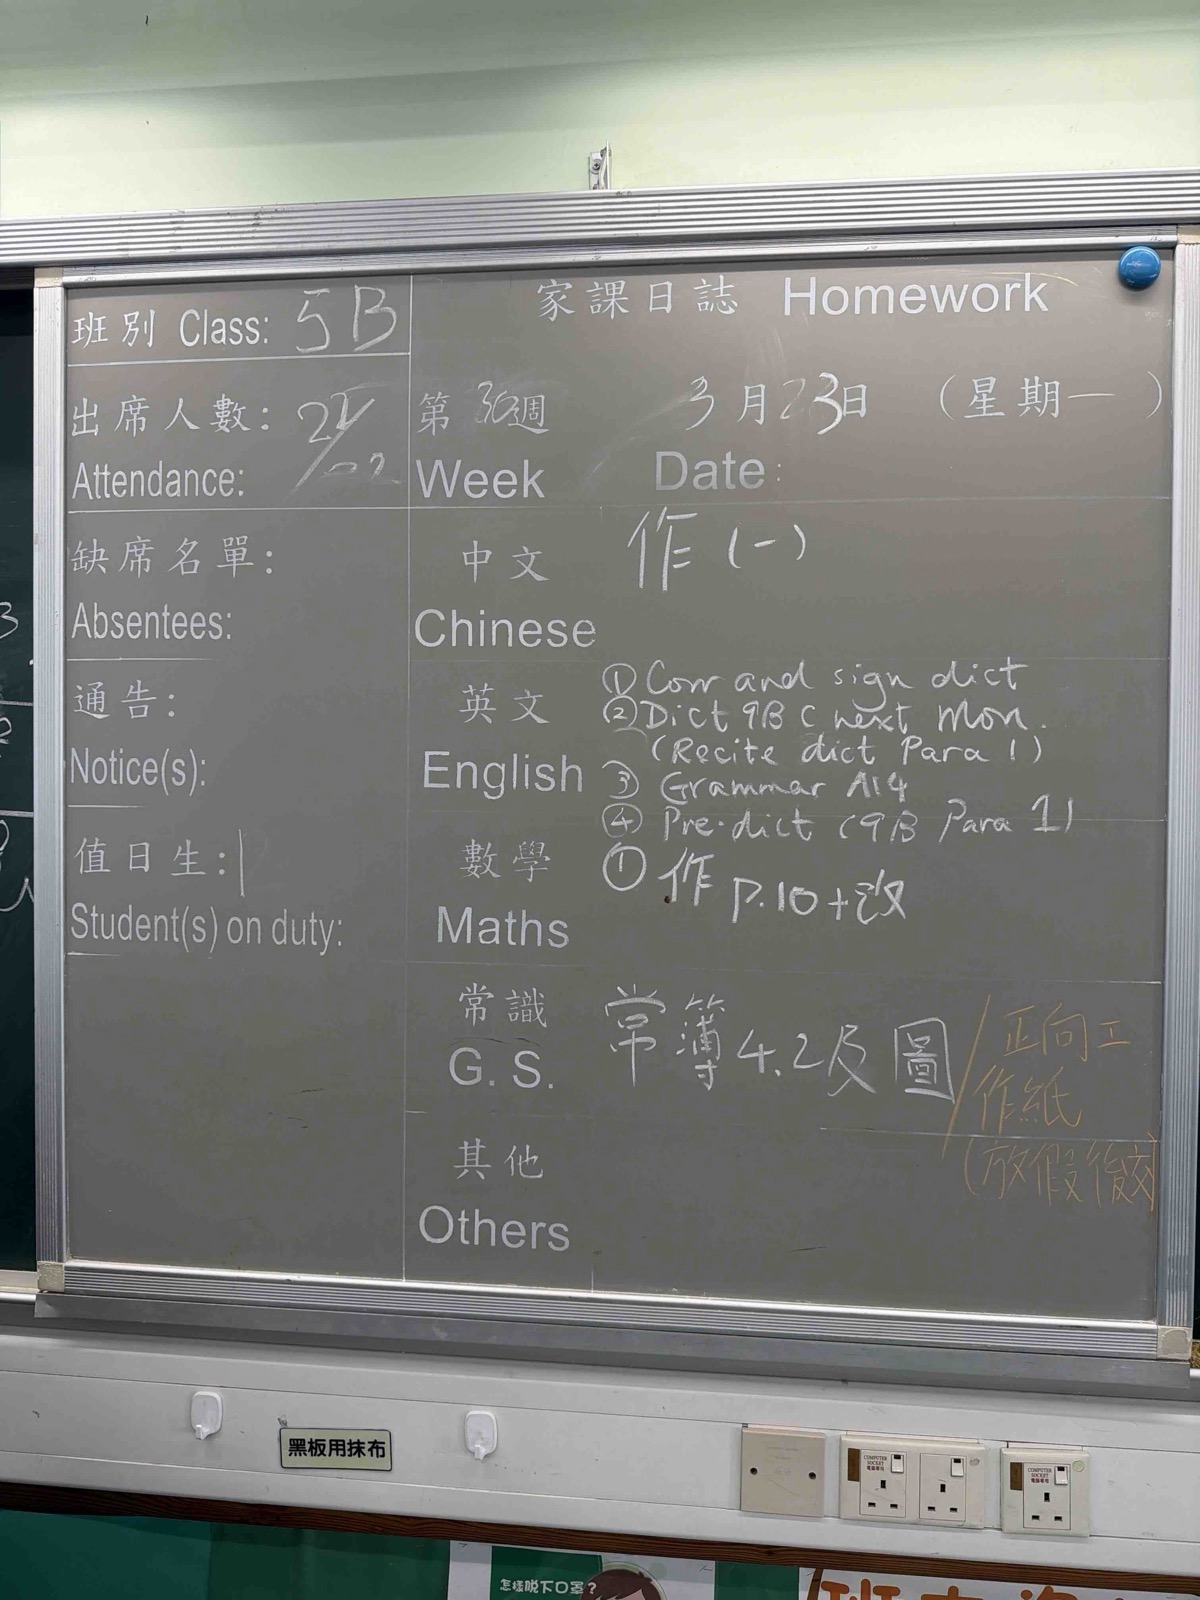 家課日誌 Homework
班別 Class: 5B
出席人數:
Attendance:
第30週
Week
3月23日 (星期一)
Date:
缺席名單:
Absentees:
通告:
Notice(s):
值日生:
Student(s) on duty:
中文
Chinese
作(一)
英文
English
① Corr and sign dict
② Dict 9B C next Mon.
(Recite dict Para 1)
③ Grammar A14
④ Pre-dict (9B Para 1)
數學
Maths
① 作 P.10+改
常識
G. S.
常簿4.2及圖
/正向工
作紙
(放假後交)
其他
Others
黑板用抹布
COMPUTER
SOCKET
電腦專用
COMPUTER
SOCKET
電腦專用
怎樣脫下口罩?